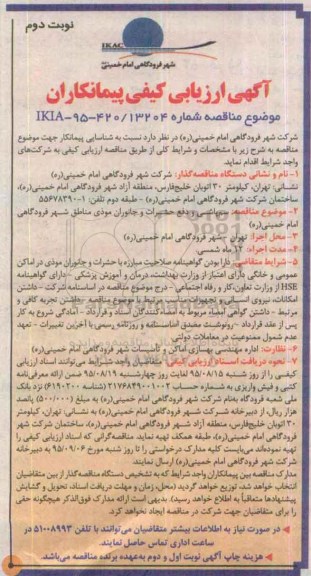 نوبت دوم
IKAC
شهر فرودگاهی امام خمینی(ره)
آگهی ارزیابی کیفی پیمانکاران
موضوع مناقصه شماره IKIA-95-420/13204
شرکت شهر فرودگاهی امام خمینی(ره) در نظر دارد نسبت به شناسایی پیمانکار جهت موضوع
مناقصه به شرح زیر با مشخصات و شرایط کلی از طریق مناقصه ارزیابی کیفی به شرکت‌های
واجد شرایط اقدام نماید.
۱- نام و نشانی دستگاه مناقصه‌گذار: شرکت شهر فرودگاهی امام خمینی(ره)
نشانی: تهران، کیلومتر ۳۰ اتوبان خلیج‌فارس، منطقه آزاد شهر فرودگاهی امام خمینی(ره)،
ساختمان شرکت شهر فرودگاهی امام خمینی(ره) - طبقه دوم تلفن: ۱-۵۵۶۷۸۳۹۰
۲- موضوع مناقصه: سمپاشی و دفع حشرات و جانوران موذی مناطق شهر فرودگاهی
امام خمینی(ره)
۳- محل اجرا: تهران - شهر فرودگاهی امام خمینی(ره)
۴- مدت اجرا: ۱۲ ماه شمسی
۵- شرایط متقاضی: دارا بودن گواهینامه صلاحیت مبارزه با حشرات و جانوران موذی در اماکن
عمومی و خانگی دارای اعتبار از وزارت بهداشت، درمان و آموزش پزشکی - دارای گواهینامه
HSE از وزارت تعاون، کار و رفاه اجتماعی - درج موضوع مناقصه در اساسنامه شرکت - داشتن
امکانات، نیروی انسانی و تجهیزات مناسب مرتبط با موضوع مناقصه - داشتن تجربه کافی و
مرتبط - داشتن گواهی امضاء مربوط به امضاءکنندگان اسناد و قرارداد - آمادگی شروع به کار
پس از عقد قرارداد - رونوشت مصدق اساسنامه و روزنامه رسمی با آخرین تغییرات - تعهد
عدم شمول ممنوعیت در معاملات دولتی
۶- نظارت: اداره مهندسی بهسازی اماکن و تاسیسات شهر فرودگاهی امام خمینی(ره)
۷- نحوه دریافت اسناد ارزیابی کیفی: متقاضیان واجد شرایط می‌توانند اسناد ارزیابی
کیفی را از روز شنبه ۹۵/۰۸/۱۵ لغایت روز چهارشنبه ۹۵/۰۸/۱۹ ضمن ارائه معرفی‌نامه
کتبی و فیش واریزی به شماره حساب ۲۱۷۶۸۴۹۰۰۱۰۰۲ (شناسه ۶۱۹۰۲۰۰) نزد بانک
ملی شعبه فرودگاه به‌نام شرکت شهر فرودگاهی امام خمینی(ره) به مبلغ (۵۰۰/۰۰۰) پانصد
هزار ریال، از دبیرخانه شرکت شهر فرودگاهی امام خمینی(ره) به نشانی تهران، کیلومتر
۳۰ اتوبان خلیج‌فارس، منطقه آزاد شهر فرودگاهی امام خمینی(ره)، ساختمان شرکت شهر
فرودگاهی امام خمینی(ره)، طبقه همکف تهیه نماید. مناقصه‌گرانی که اسناد ارزیابی کیفی را
تهیه نموده‌اند می‌بایست کلیه مدارک درخواستی را تا روز شنبه مورخ ۹۵/۰۹/۰۶ به دبیرخانه
شرکت شهر فرودگاهی امام خمینی(ره) ارسال نمایند.
مدارک مناقصه بین پیمانکاران واجد شرایط که به تشخیص دستگاه مناقصه‌گذار از بین متقاضیان
انتخاب خواهد شد، توزیع خواهد گردید (محل، زمان و مهلت دریافت اسناد، تحویل و گشایش
پیشنهادها متعاقباً به اطلاع خواهد رسید). بدیهی است ارائه مدارک فوق‌الذکر هیچگونه حقی
را برای متقاضیان جهت شرکت در مناقصه ایجاد نخواهد کرد.
در صورت نیاز به اطلاعات بیشتر متقاضیان می‌توانند با تلفن ۵۱۰۰۸۹۹۳ در
ساعت اداری تماس حاصل نمایند.
هزینه چاپ آگهی نوبت اول و دوم به‌عهده برنده مناقصه می‌باشد.